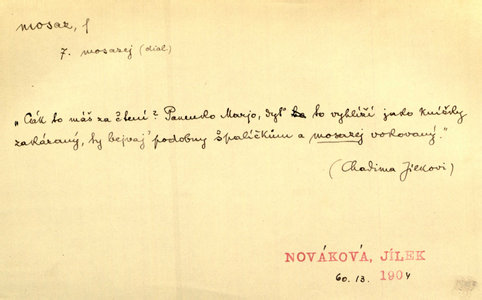 mosaz, f
7. mosazej (dial)
„Cák to máš za čtení? Panenko Marjo, dyť to vyhlíží jako knížky
zakázaný, ty bejvaj' podobny špalíčkům a mosazej vokovaný."
(Chadima Jílkovi)
NOVÁKOVÁ, JÍLEK
60. 13. 1904